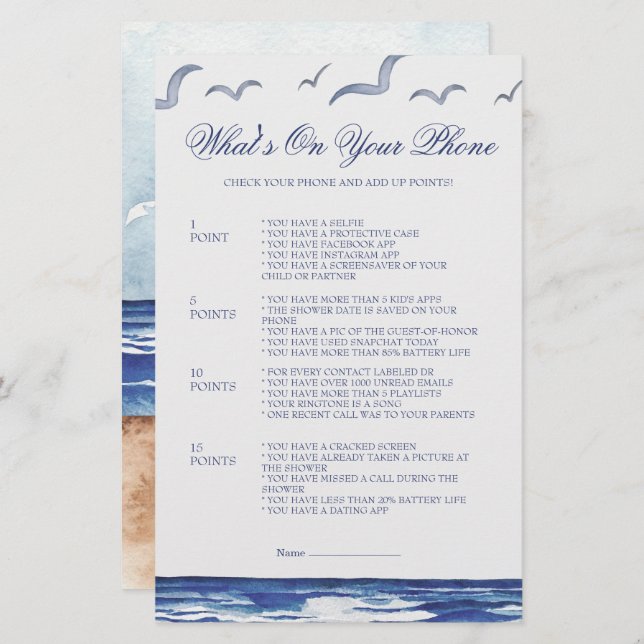 What's On Your Phone
CHECK YOUR PHONE AND ADD UP POINTS!
1
POINT
* YOU HAVE A SELFIE
* YOU HAVE A PROTECTIVE CASE
* YOU HAVE FACEBOOK APP
* YOU HAVE INSTAGRAM APP
* YOU HAVE A SCREENSAVER OF YOUR
CHILD OR PARTNER
5
POINTS
* YOU HAVE MORE THAN 5 KID'S APPS
* THE SHOWER DATE IS SAVED ON YOUR
PHONE
* YOU HAVE A PIC OF THE GUEST-OF-HONOR
* YOU HAVE USED SNAPCHAT TODAY
* YOU HAVE MORE THAN 85% BATTERY LIFE
10
POINTS
* FOR EVERY CONTACT LABELED DR
* YOU HAVE OVER 1000 UNREAD EMAILS
* YOU HAVE MORE THAN 5 PLAYLISTS
* YOUR RINGTONE IS A SONG
* ONE RECENT CALL WAS TO YOUR PARENTS
15
POINTS
* YOU HAVE A CRACKED SCREEN
* YOU HAVE ALREADY TAKEN A PICTURE AT
THE SHOWER
* YOU HAVE MISSED A CALL DURING THE
SHOWER
* YOU HAVE LESS THAN 20% BATTERY LIFE
* YOU HAVE A DATING APP
Name ____________________